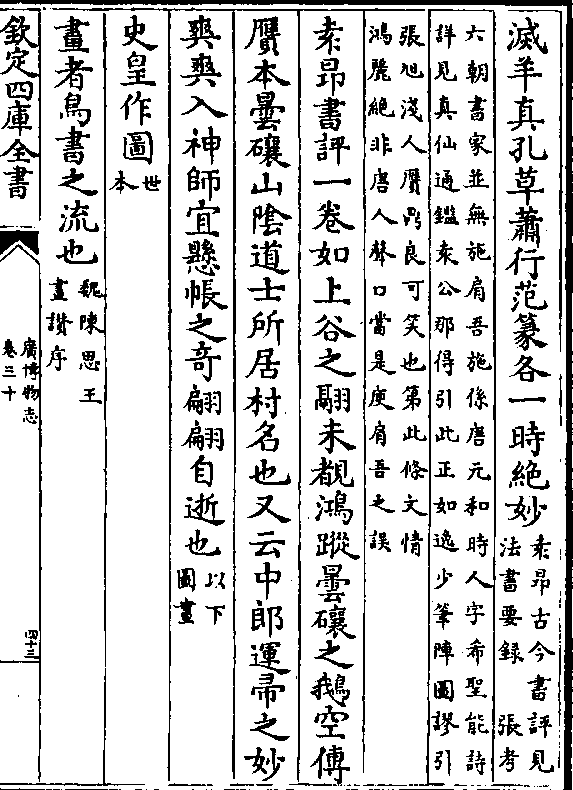 滅羊真孔草蕭行范篆各一時絶妙袁昂古今書評見
法書要録 張考
六朝書家並無施肩吾施係唐元和時人字希聖能詩
詳見真仙通鑑袁公那得引此正如逸少筆陣圖謬引
張旭淺人贗鼎良可笑也第此條文情
鴻麗絶非唐人聲口當是庾肩吾之誤
袁昂書評一卷如上谷之翮未覩鴻蹤曇𥗝之鵝空傳
贗本曇𥗝山隂道士所居村名也又云中郎運帚之妙
爽爽入神師宜懸帳之竒翩翩自逝也以下
圖畫
史皇作圖世
本
畫者鳥書之流也魏陳思王
畫讃序
欽定四庫全書
廣博物志
卷三十
四十三